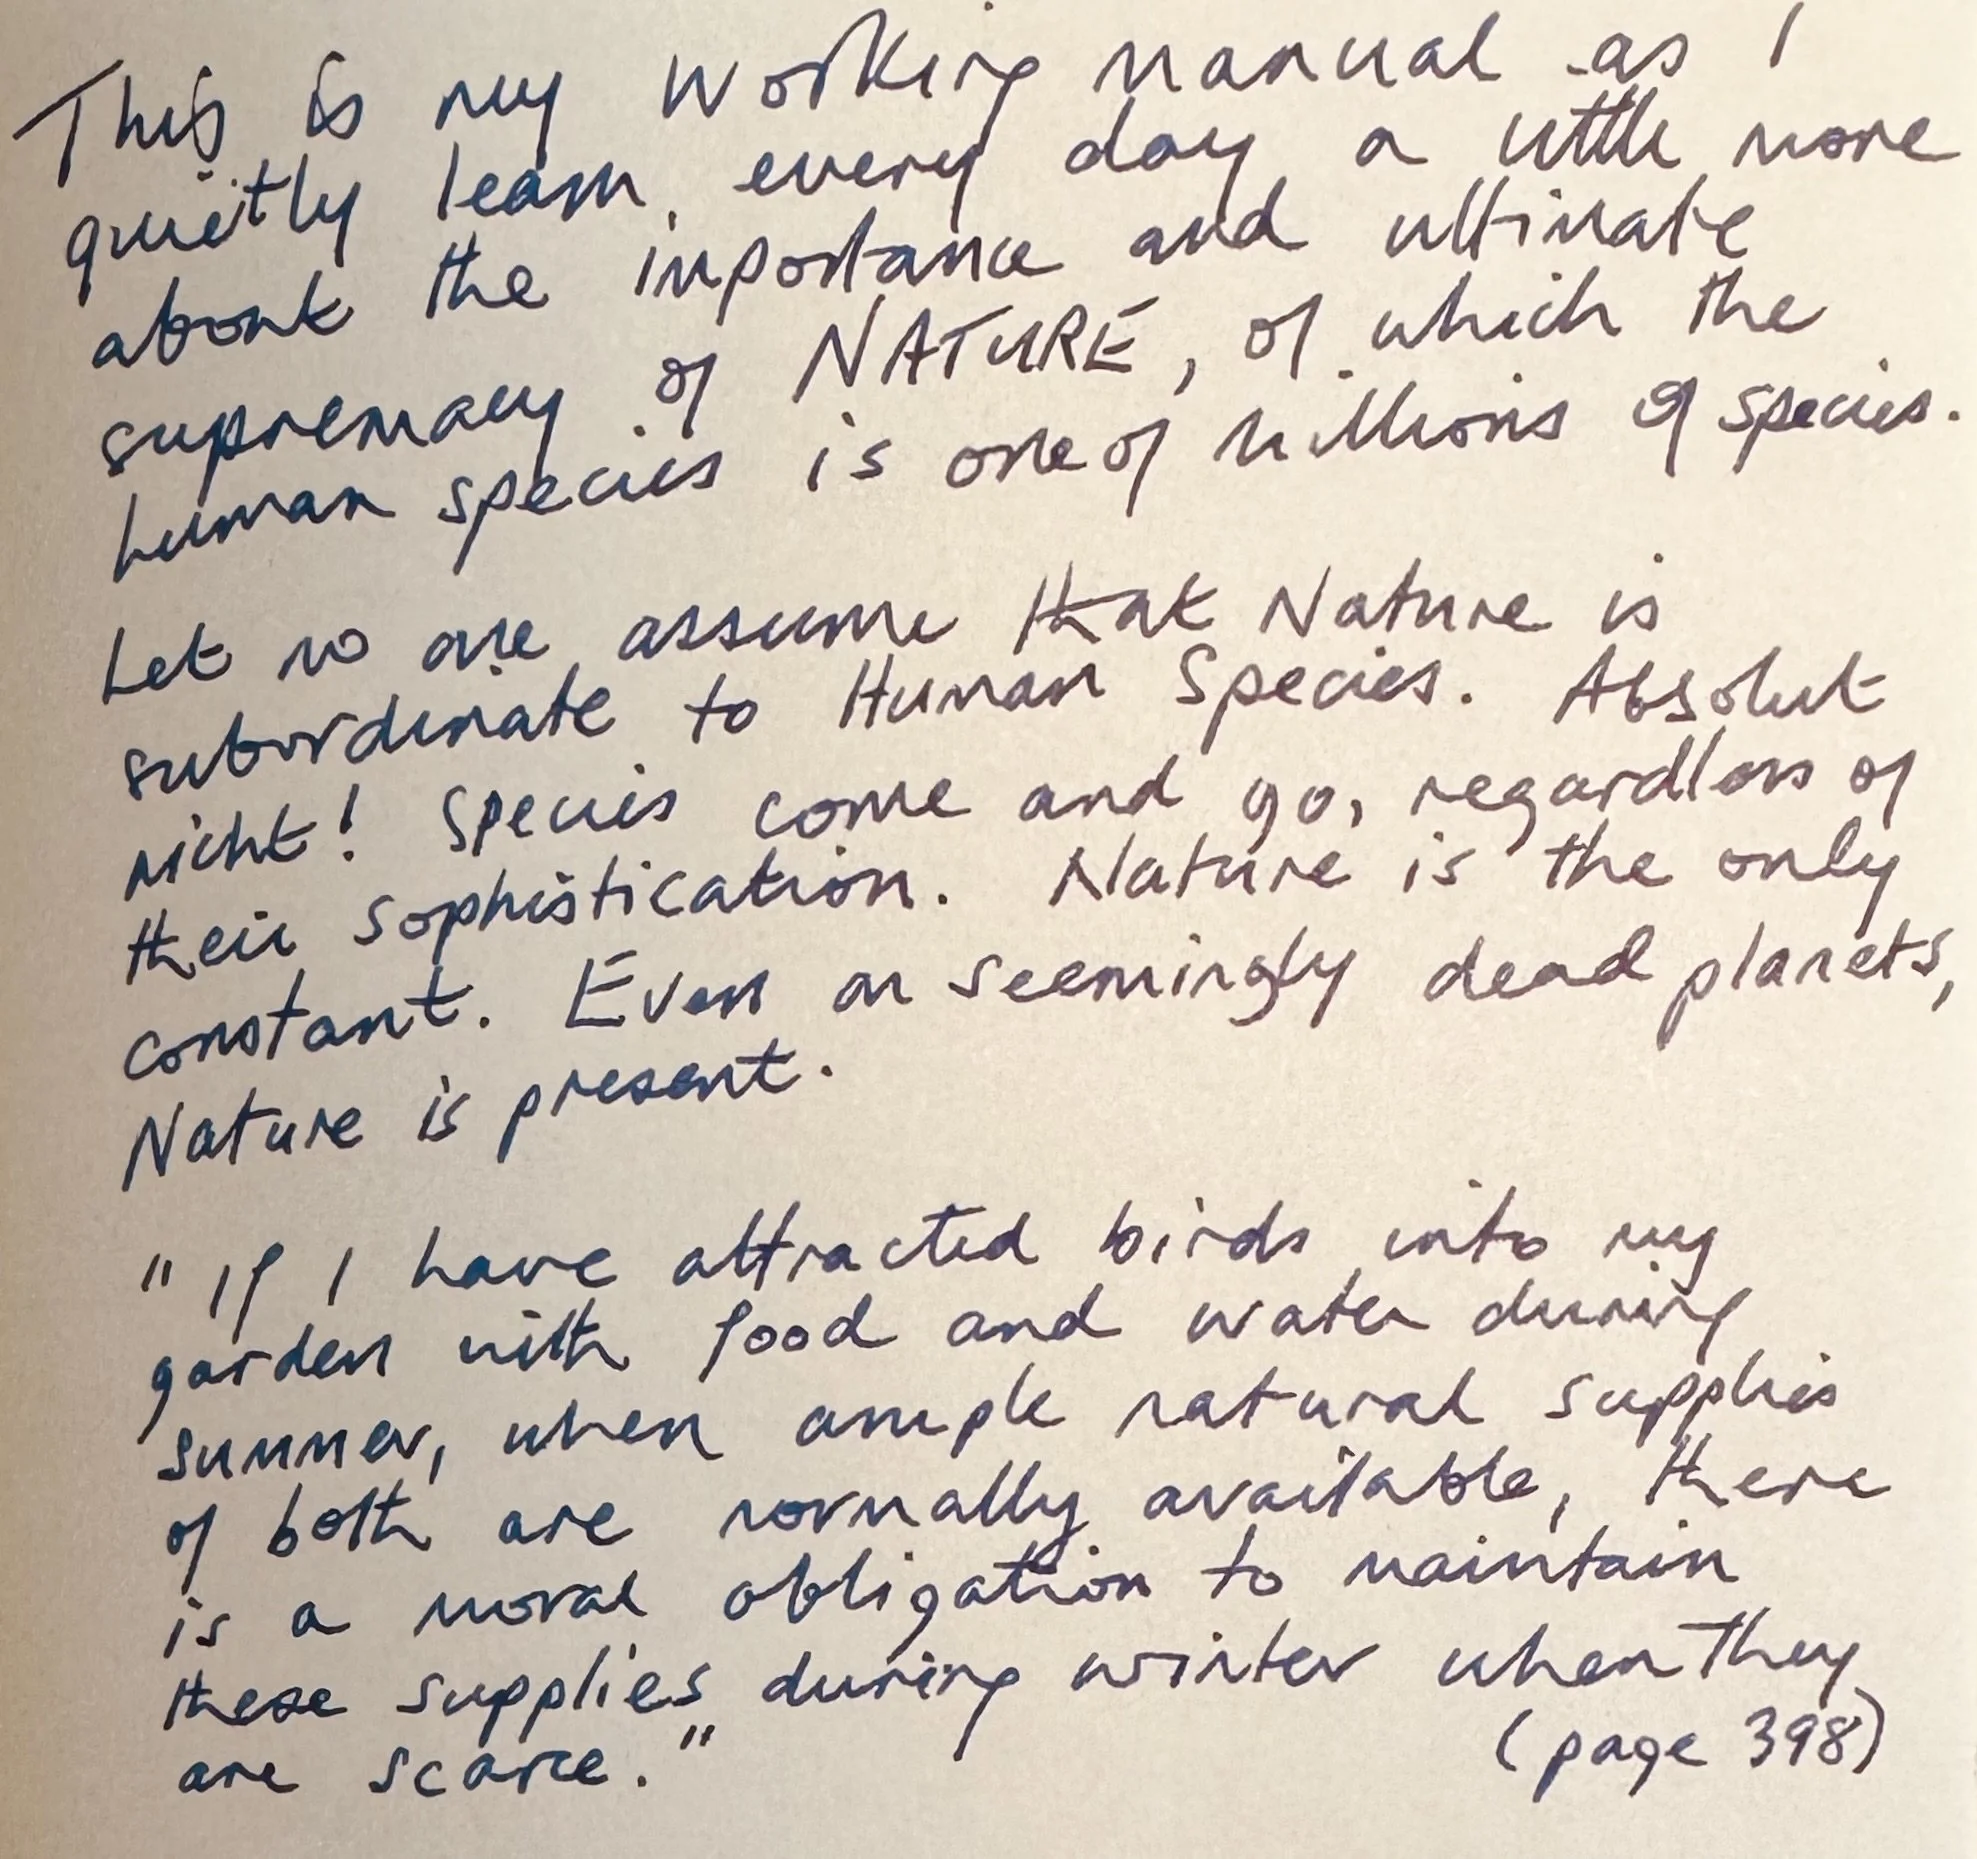 This is my working manual as I
quietly learn, every day a little more
about the importance and ultimate
supremacy of NATURE, of which the
human species is one of millions of species.
Let no one assume that Nature is
subordinate to Human Species. Absolut
nicht! Species come and go, regardless of
their sophistication. Nature is the only
constant. Even on seemingly dead planets,
Nature is present.
"If I have attracted birds into my
garden with food and water during
summer, when ample natural supplies
of both are normally available, there
is a moral obligation to maintain
these supplies during winter when they
are scarce." (page 398)